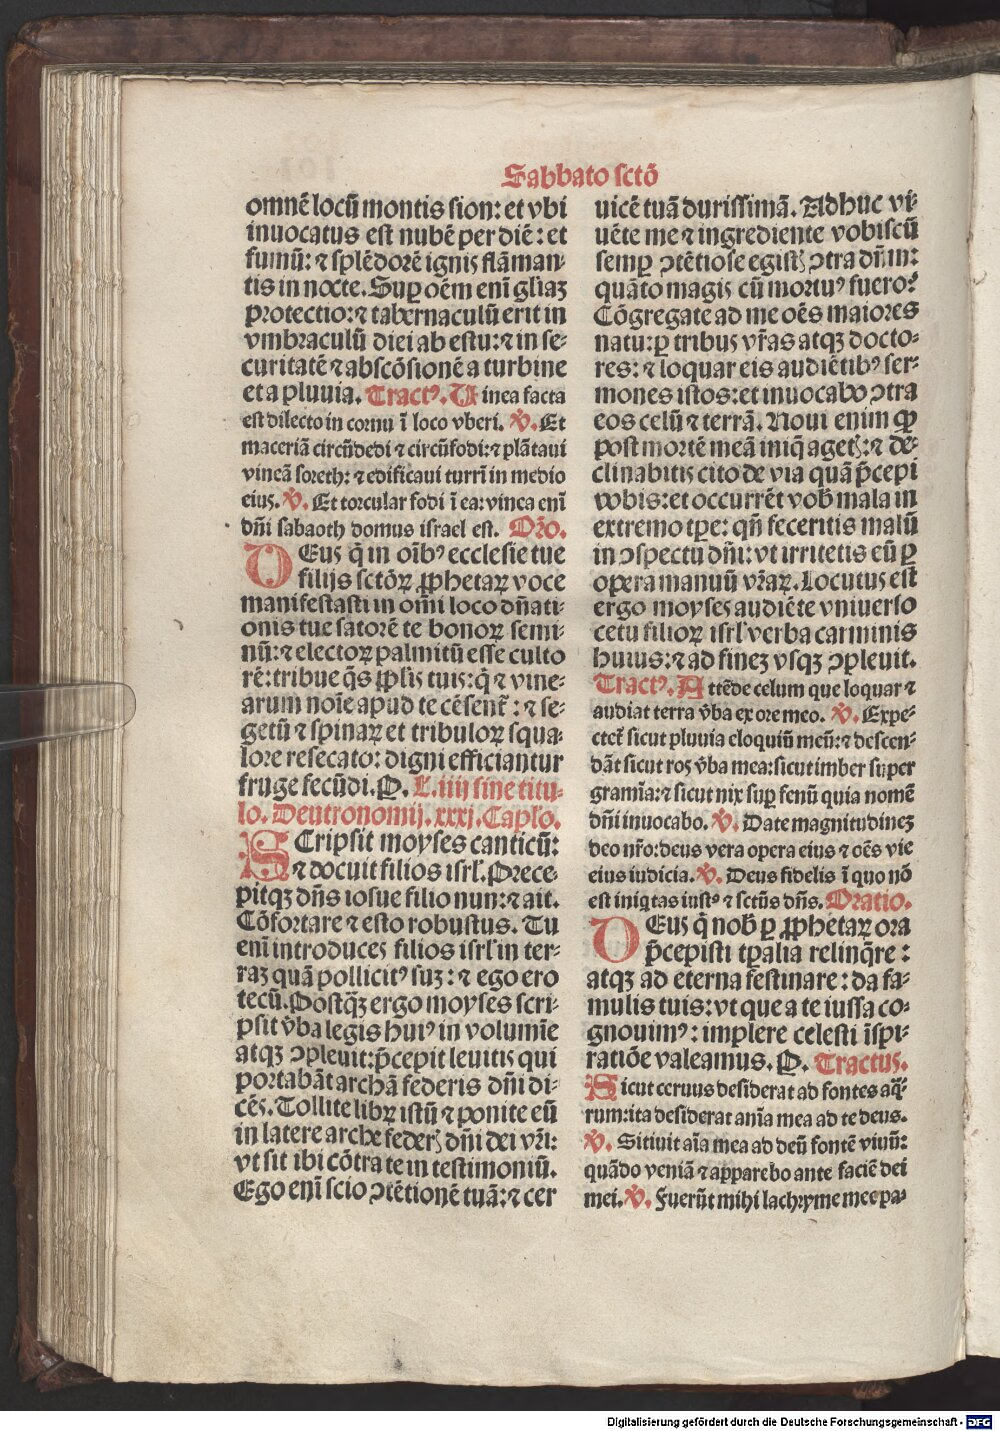 Sabbato sctō
omnē locū montis sion: et vbi
inuocatus est nubē per diē: et
fumū: ⁊ splēdorē ignis flāman-
tis in nocte. Sup oēm enī gl'iaꝫ
protectio: ⁊ tabernaculū erit in
vmbraculū diei ab estu: ⁊ in se-
curitatē ⁊ abscōsionē a turbine
et a pluuia. Tractꝰ. Uinea facta
est dilecto in cornu ī loco vberi. ℣. Et
maceriā circūdedi ⁊ circūfodi: ⁊ plātaui
vineā soreth: ⁊ edificaui turrī in medio
eius. ℣. Et torcular fodi ī ea: vinea enī
dn̄i sabaoth domus israel est. Oro.
DEus q̄ in oīb⁹ ecclesie tue
filijs sctōꝝ ꝓphetaꝝ voce
manifestasti in om̄i loco dn̄ati-
onis tue satorē te bonoꝝ semi-
nū: ⁊ electoꝝ palmitū esse culto
rē: tribue q̄s ppl'is tuis: q̄ ⁊ vine-
arum noīe apud te cēsent̄: ⁊ se-
getū ⁊ spinaꝝ et tribuloꝝ squa-
lore resecato: digni efficiantur
fruge fecūdi. P. L. iiij sine titu-
lo. Deutronomij. xxxj. Capl'o.
SCripsit moyses canticū:
⁊ docuit filios isrl'. Prece-
pitqꝫ dn̄s iosue filio nun: ⁊ ait.
Cōfortare ⁊ esto robustus. Tu
enī introduces filios isrl' in ter-
raꝫ quā pollicitꝰ suꝫ: ⁊ ego ero
tecū. Postq̄ꝫ ergo moyses scri-
psit v̄ba legis huiꝰ in volumīe
atqꝫ ꝯpleuit: p̄cepit leuitis qui
portabāt archā federis dn̄i di-
cēs. Tollite libꝝ istū ⁊ ponite eū
in latere arche federꝭ dn̄i dei vr̄i:
vt sit ibi cōtra te in testimoniū.
Ego enī scio ꝯtētionē tuā: ⁊ cer
uicē tuā durissimā. Adhuc vi-
uēte me ⁊ ingrediente vobiscū
semꝑ ꝯtētiose egistꝭ ꝯtra dn̄m:
quāto magis cū mortuꝰ fuero?
Cōgregate ad me oēs maiores
natu: ꝑ tribus vr̄as atqꝫ docto-
res: ⁊ loquar eis audiētibꝰ ser-
mones istos: et inuocabo ꝯtra
eos celū ⁊ terrā. Noui enim ꝙ
post mortē meā iniq̄ agetꝭ: ⁊ de-
clinabitis cito de via quā p̄cepi
vobis: et occurrēt vob̄ mala in
extremo tp̄e: qn̄ feceritis malū
in ꝯspectu dn̄i: vt irritetis eū ꝑ
opera manuū vr̄aꝝ. Locutus est
ergo moyses audiēte vniuerso
cetu filioꝝ isrl' verba carminis
huius: ⁊ ad fineꝫ vsqꝫ ꝯpleuit.
Tractꝰ. Attēde celum que loquar ⁊
audiat terra v̄ba ex ore meo. ℣. Expe-
ctet̄ sicut pluuia eloquiū meū: ⁊ descen-
dāt sicut ros v̄ba mea: sicut imber super
gramīa: ⁊ sicut nix suꝑ fenū quia nomē
dn̄i inuocabo. ℣. Date magnitudineꝫ
deo nr̄o: deus vera opera eius ⁊ oēs vie
eius iudicia. ℣. Deus fidelis ī quo nō
est iniq̄tas iustꝰ ⁊ sctūs dn̄s. Oratio.
DEus q̄ nob̄ ꝑ ꝓphetaꝝ ora
p̄cepisti tp̄alia relinq̄re:
atqꝫ ad eterna festinare: da fa-
mulis tuis: vt que a te iussa co-
gnouimꝰ: implere celesti īspi-
ratiōe valeamus. P. Tractus.
Sicut ceruus desiderat ad fontes aq̄-
rum: ita desiderat anīa mea ad te deus.
℣. Sitiuit aīa mea ad deū fontē viuū:
quādo veniā ⁊ apparebo ante faciē dei
mei. ℣. Fuerūt mihi lachryme mee pa-
Digitalisierung gefördert durch die Deutsche Forschungsgemeinschaft - DFG